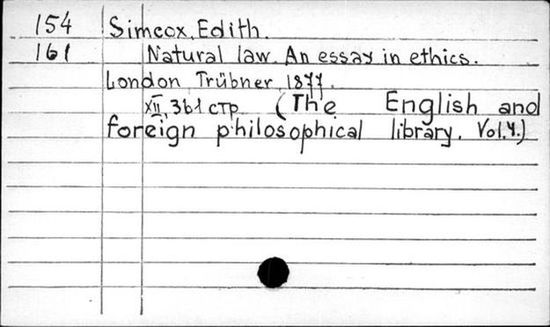 154 Simcox, Edith.
161 Natural law. An essay in ethics.
London, Trübner, 1877.
XII, 361 стр. (The English and
foreign philosophical library. Vol.4.)